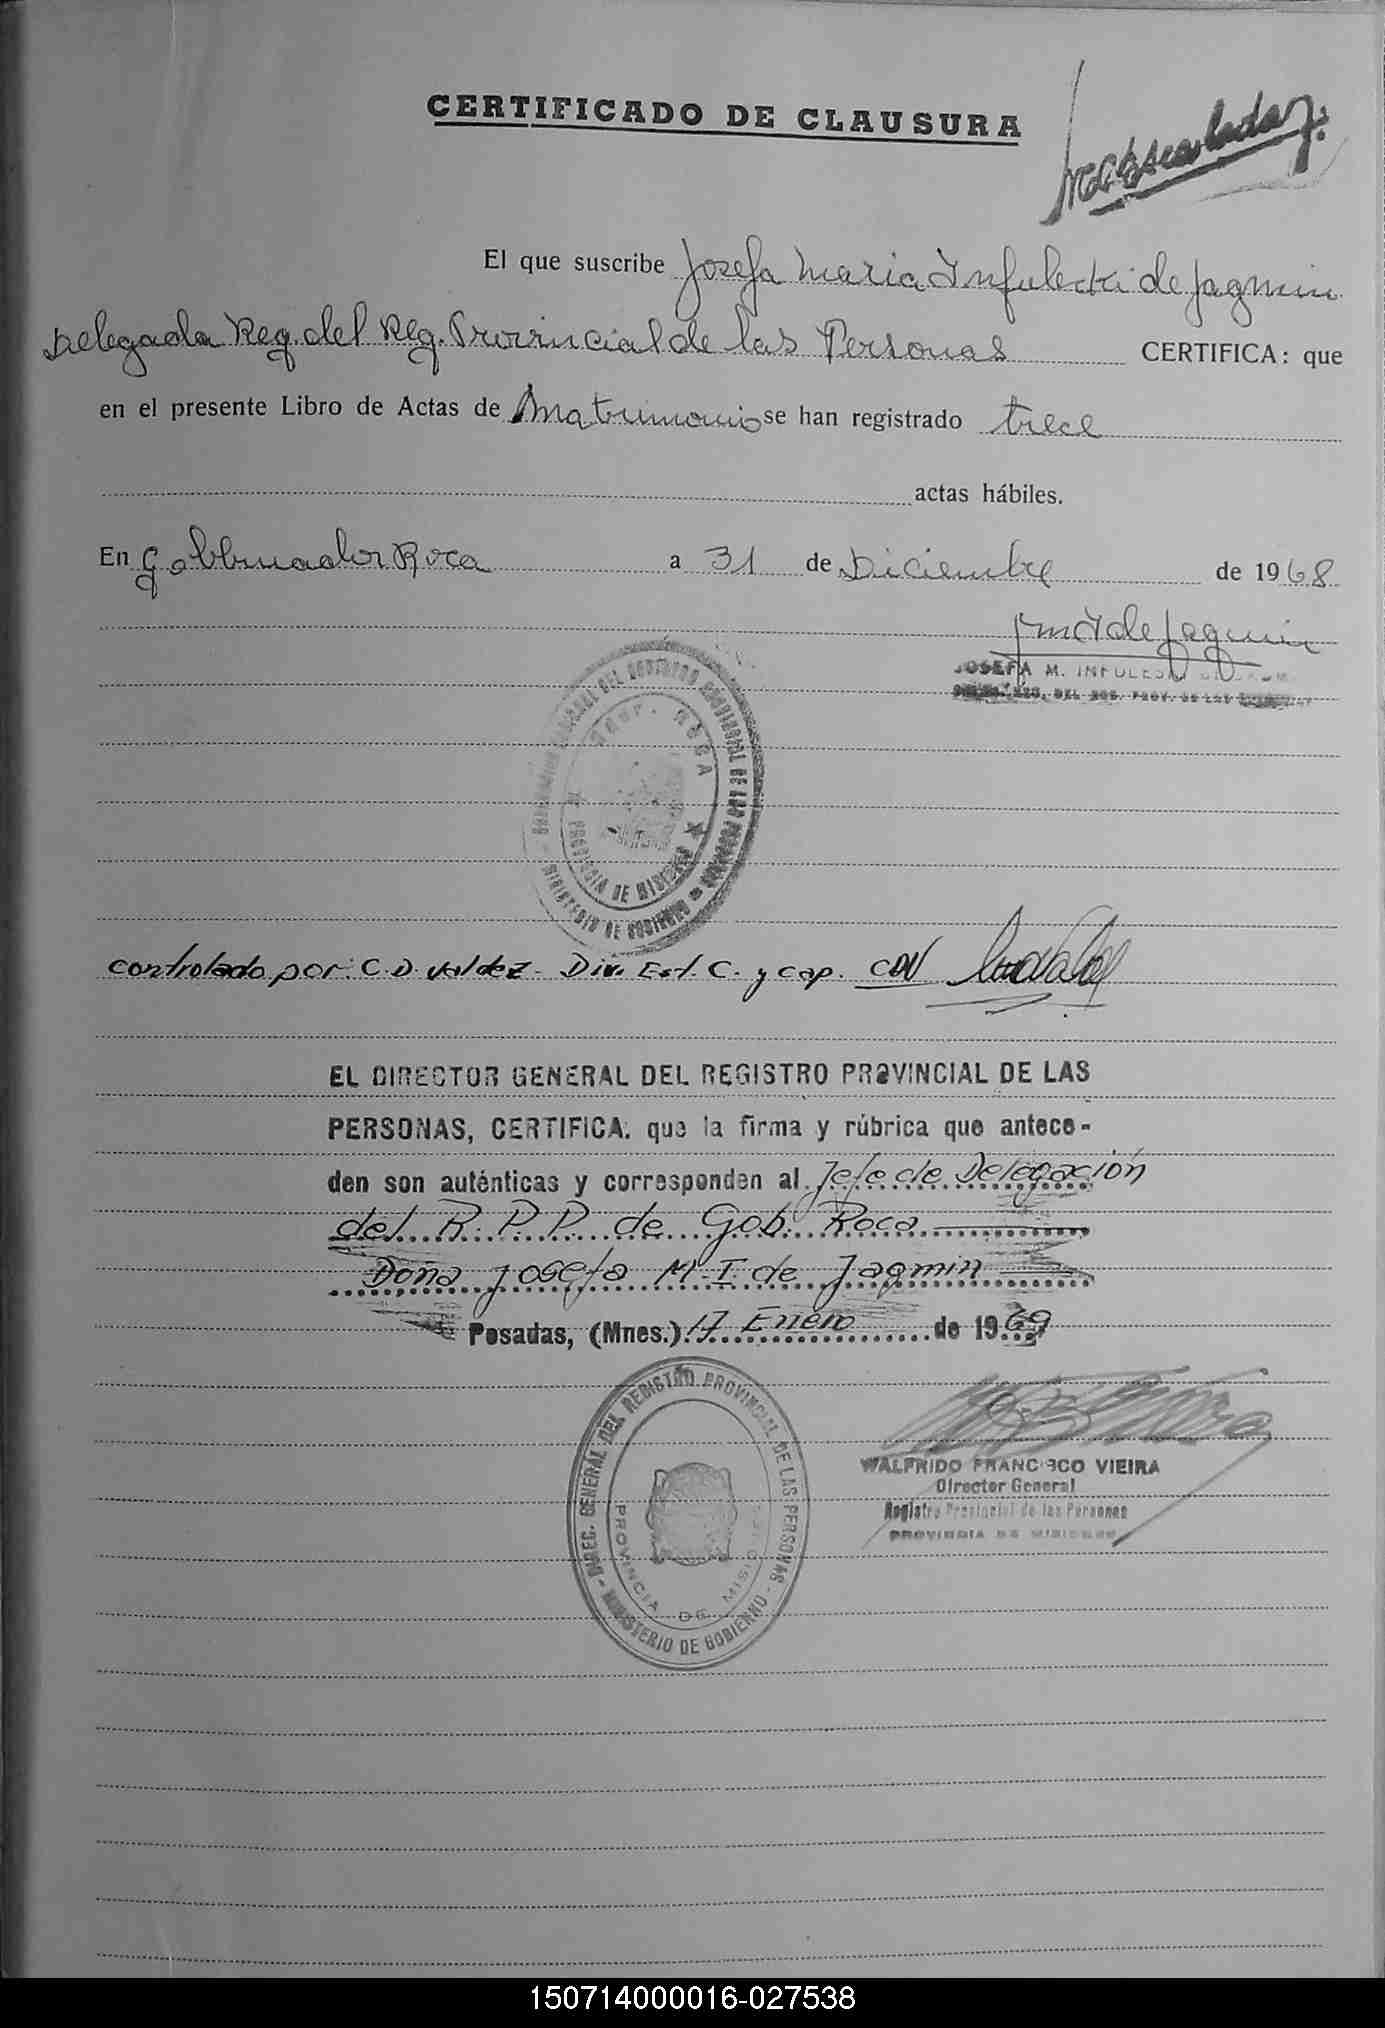 CERTIFICADO DE CLAUSURA
El que suscribe Josefa Maria Infulecki de Jagmin
Delegada Reg. del Reg. Provincial de las Personas CERTIFICA: que
en el presente Libro de Actas de Matrimonio se han registrado trece
actas hábiles.
En Gobernador Roca a 31 de Diciembre de 1968
JOSEFA M.
GOR. ROCA
PROVINCIA DE MISIONES
MINISTERIO DE GOBIERNO
controlado por: C.D. Valdez - Div. Est. C. y cap. CDV
EL DIRECTOR GENERAL DEL REGISTRO PROVINCIAL DE LAS
PERSONAS, CERTIFICA: que la firma y rúbrica que antece-
den son auténticas y corresponden al Jefe de Delegación
del R. P. P. de Gob. Roca
Doña Josefa M. I. de Jagmin
Posadas, (Mnes.) 17 Enero de 1969
DIREC. GENERAL DEL REGISTRO PROVINCIAL DE LAS PERSONAS
PROVINCIA DE MISIONES
- MINISTERIO DE GOBIERNO -
WALFRIDO FRANCISCO VIEIRA
Director General
Registro Provincial de las Personas
PROVINCIA DE MISIONES
150714000016-027538